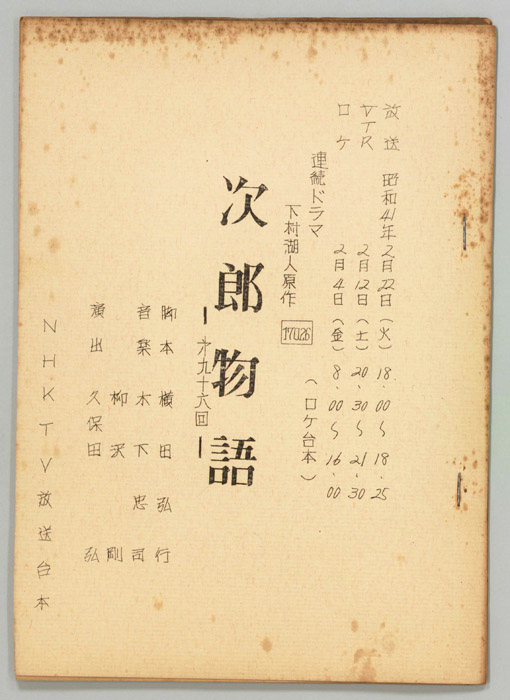 放送 昭和41年2月22日(火) 18.00〜18.25
VTR 2月12日(土) 20.30〜21.30
ロケ 2月4日(金) 8.00〜16.00
連続ドラマ
(ロケ台本)
下村湖人原作
17026
次郎物語
―第九十六回―
脚本 横田弘行
音楽 木下忠司
柳沢剛
演出 久保田弘
NHKTV放送台本